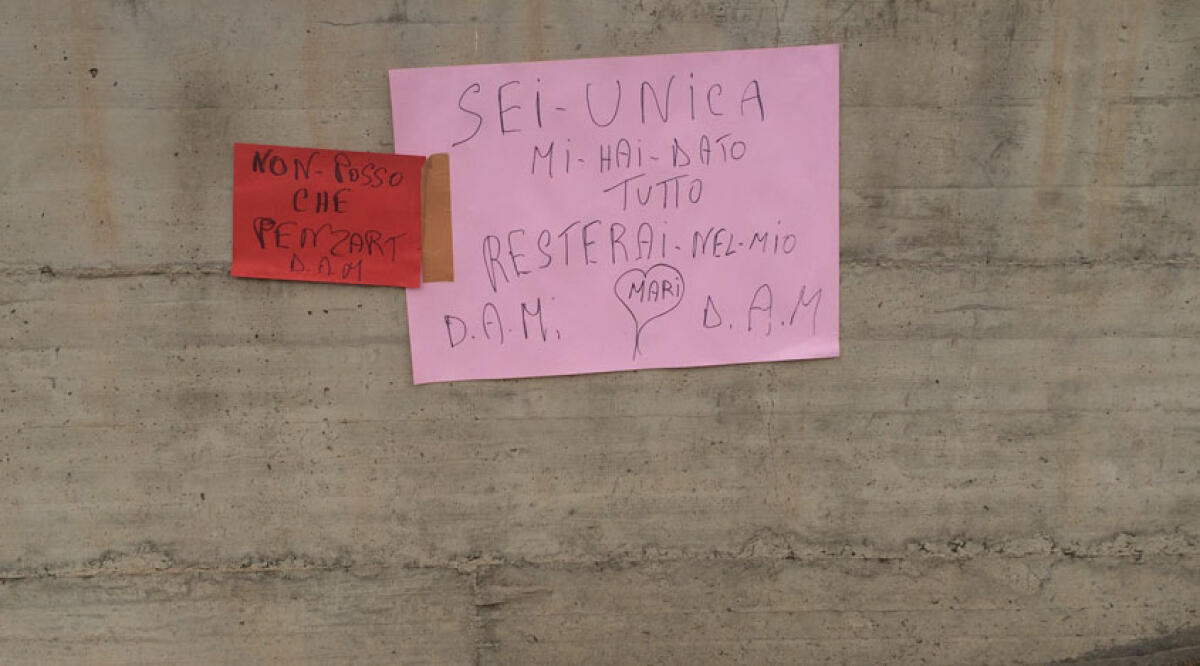 NON-POSSO
CHE
PENZART
D.A.M
SEI-UNICA
MI-HAI-DATO
TUTTO
RESTERAI-NEL-MIO
MARI
D.A.M. D.A.M